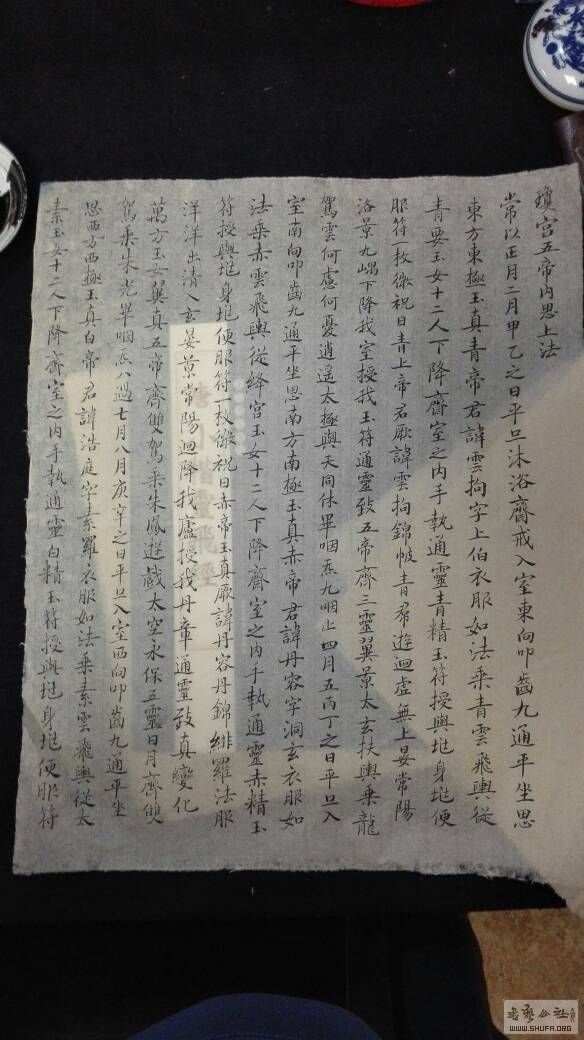 瓊宮五帝內思上法
常以正月二月甲乙之日平旦沐浴齋戒入室東向叩齒九通平坐思
東方東極玉真青帝君諱雲拘字上伯衣服如法乘青雲飛輿從
青要玉女十二人下降齋室之內手執通靈青精玉符授與兆身兆便
服符一枚微祝曰青上帝君厥諱雲拘錦帔青帬遊迴虛無上晏常陽
洛景九嵎下降我室授我玉符通靈致五帝齊三靈翼景太玄扶輿乘龍
駕雲何慮何憂逍遙太極與天同休畢咽炁九咽止四月五丙丁之日平旦入
室南向叩齒九通平坐思南方南極玉真赤帝君諱丹容字洞玄衣服如
法乘赤雲飛輿從絳宮玉女十二人下降齋室之內手執通靈赤精玉
符授與兆身兆便服符一枚微祝曰赤帝玉真厥諱丹容丹錦緋羅法服
洋洋出清入玄晏景常陽迴降我廬授我丹章通靈致真變化
萬方玉女翼真五帝齊雙駕乘朱鳳遊戲太空永保五靈日月齊雙
駕乘朱光畢咽炁八過七月八月庚辛之日平旦入室西向叩齒九通平坐
思西方西極玉真白帝君諱浩庭字素羅衣服如法乘素雲飛輿從太
素玉女十二人下降齋室之內手執通靈白精玉符授與兆身兆便服符
唐小楷靈飛經
WWW.SHUFA.ORG